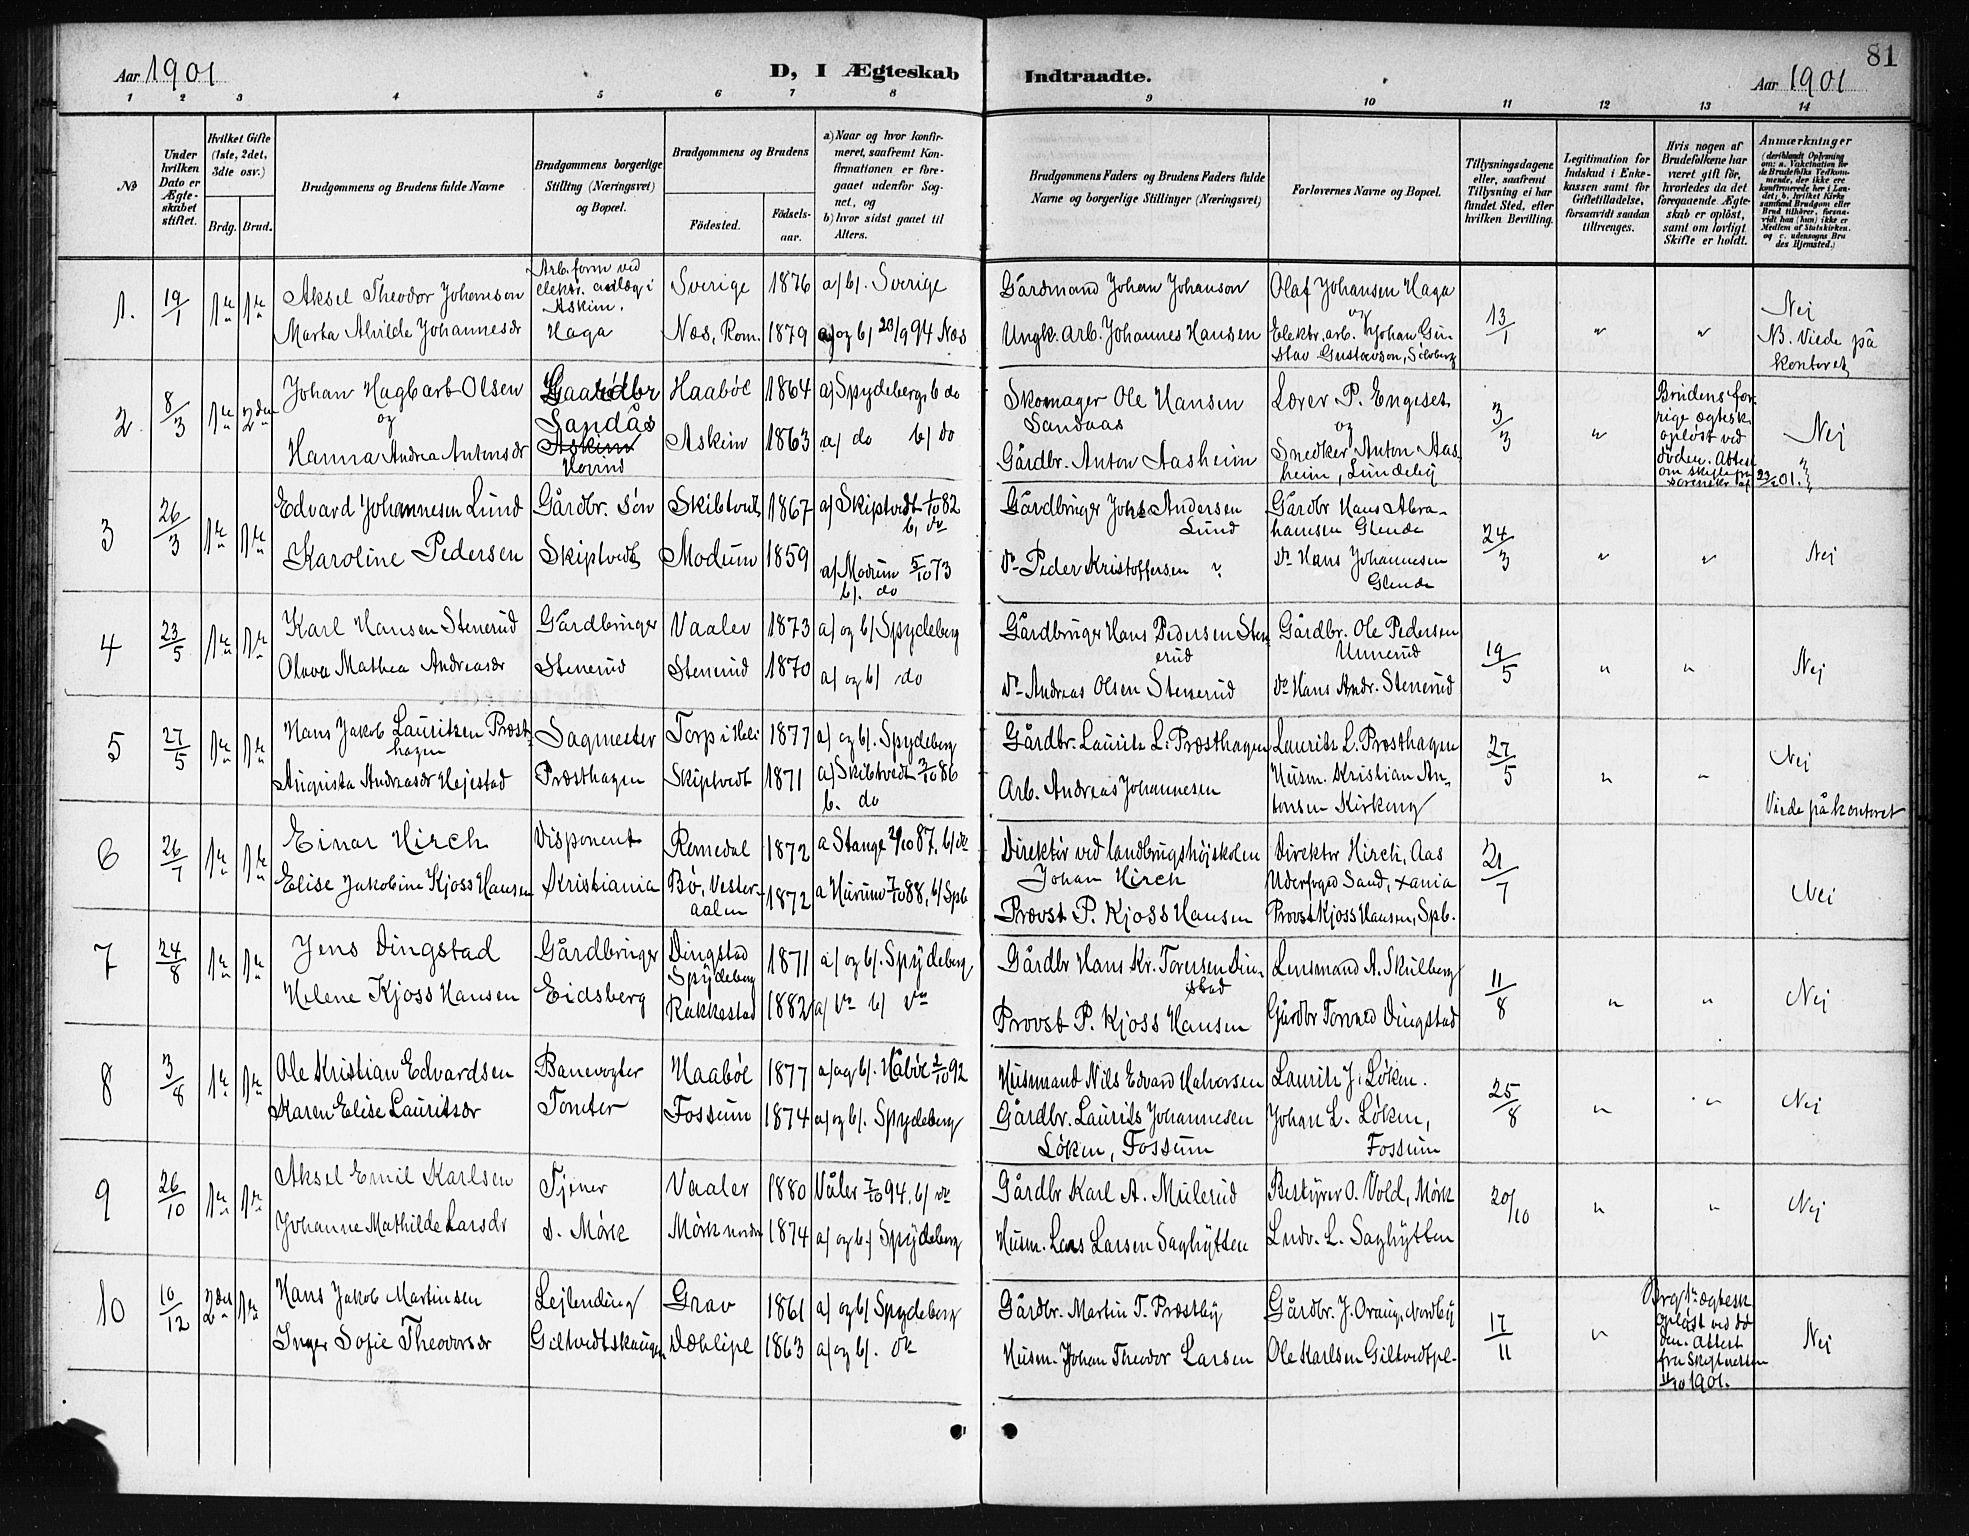 81
Aar 1901
D, I Ægteskab
Indtraadte.
Aar 1901
1 2 3 4 5 6 7 8 9 10 11 12 13 14
No
Under hvilken Dato er Ægteskabet stiftet.
Hvilket Gifte (1ste, 2det, 3dte osv.)
Brdg. Brud.
Brudgommens og Brudens fulde Navne
Brudgommens borgerlige Stilling (Næringsvei) og Bopæl.
Brudgommens og Brudens
Fødested.
Fødselsaar.
a) Naar og hvor konfirmeret, saafremt Konfirmationen er foregaaet udenfor Sognet, og
b) hvor sidst gaaet til Alters.
Brudgommens Faders og Brudens Faders fulde Navne og borgerlige Stillinger (Næringsvei)
Forlovernes Navne og Bopæl.
Tillysningsdagene eller, saafremt Tillysning ei har fundet Sted, efter hvilken Bevilling.
Legitimation for Indskud i Enkekassen samt for Giftetilladelse, forsaavidt saadan tiltrænges.
Hvis nogen af Brudefolkene har været gift før, hvorledes da det foregaaende Ægteskab er opløst, samt om lovligt Skifte er holdt.
Anmærkninger
1. 19/1 1ste 1ste
Aksel Theodor Johanson
Arb.form ved elektr. anlæg i Askim.
Sverige 1876 a) b). Sverige
Gårdmand Johan Johanson
Olaf Johansen Haga
og
13/1 " "
Nej
Marta Alvilde Johannesdr
Haga
Næs, Rom. 1879 a) og b) 23/9 94 Næs
Ungk. arb. Johannes Hansen
Elektr. arb. Johan Gustav Gustavson, Solberg
NB. Viede på kontoret
2. 8/3 1ste 2den
Johan Hagbart Olsen
og
Gaardbr Sandås
Haabøl 1864 a) Spydeberg, b do
Skomager Ole Hansen Sandaas
Lærer P. Engeset
og
3/3 "
Brudens forrige ægtesk. opløst ved døden. Attest om skifte fra sorenskr af 23/2 01.
Nej
Hanna Andrea Antonsdr
Askim
Hovind
Askim 1863 a) do b) do
Gårdbr. Anton Aasheim
Snedker Anton Aasheim, Lundeby
3 26/3 1ste 1ste
Edvard Johannesen Lund
Gårdbr. søn
Skibtvedt 1867 a) Skiptvedt 1/10 82
b, do
Gårdbruger Johs Andersen Lund
Gårdbr Hans Abrahamsen Glende
24/3 " "
Nej
Karoline Pedersen
Skiptvedt
Modum 1859 a) Modum 5/10 73
b). do
do Peder Kristoffersen
do Hans Johannesen Glende
4 23/5 1ste 1ste
Karl Hansen Stenerud
Gårdbruger
Vaaler 1873 a) og b) Spydeberg
Gårdbruger Hans Pedersen Stenerud
Gårdbr. Ole Pedersen Unnerud
19/5 " "
Nej
Olava Mathea Andreasdr
Stenerud
Stenerud 1870 a) og b) do
do Andreas Olsen Stenerud
do Hans Andr. Stenerud
5 27/5 1ste 1ste
Hans Jakob Lauritzen Præsthagen
Sagmester
Torp i Hobøl 1877 a) og b). Spydeberg
Gårdbr. Lauritz L. Præsthagen
Lauritz L. Præsthagen
27/5 " "
Nej
Augusta Andreasdr Hejestad
Præsthagen
Skiptvedt 1871 a) Skibtvedt 3/10 86
b. do
Arb. Andreas Johannesen
Husm. Kristian Antonsen Kirkeng
Viede på kontoret
6 26/7 1ste 1ste
Einar Hirch
Disponent
Romedal 1872 a Stange 2/10 87, b) do
Direktør ved landbrugshøjskolen Johan Hirch
Direktør Hirch, Aas
21/7
Nei
Elise Jakobine Kjoss Hansen
Kristiania
Bø, Vesteraalen 1872 a Hurum 7/10 88, b) Spb
Provst P. Kjoss Hansen
Underfoged Sand, Xania
Provst Kjoss Hansen, Spb.
7 24/8 1ste 1ste
Jens Dingstad
Gårdbruger
Dingstad Spydeberg 1871 a) og b). Spydeberg
Gårdbr Hans Kr. Torersen Dinstad
Lensmand A. Skulberg
11/8 " "
Nej
Helene Kjoss Hansen
Eidsberg
Rakkestad 1882 a) do b) do
Provst P. Kjoss Hansen
Gårdbr Tormod Dingstad
8 3/8 1ste 1ste
Ole Kristian Edvardsen
Banevogter
Haabøl 1877 a) og b). Håbøl 2/10 92
Husmand Nils Edvard Halvorsen
Lauritz J. Løken.
25/8 " "
Nej
Karen Elise Lauritsdr
Tomter
Fossum 1874 a) og b). Spydeberg
Gårdbr. Laurits Johannesen Løken, Fossum
Johan L. Løken, Fossum
9 26/10 1ste 1ste
Aksel Emil Karlsen
Tjener
Vaaler 1880 Våler 7/10 94, b) do
Gårdbr Karl A. Mulerud
Bestyrer O. Vold, Mørk
20/10 " "
Nej
Johanne Mathilde Larsdr
s. Mørk
Mørk nordre 1874 a) og b.) Spydeberg
Husm. Lars Larsen Saghytten
Ludv. L. Saghytten
10 10/12 2det 1ste
Hans Jakob Martinsen
Lejlending
Grav 1861 a) og b) Spydeberg
Gårdbr. Martin T. Præstby
Gårdbr. J. Oraug, Nordby
17/11 "
Brg 1ste ægtesk. opløst ved døden. Attest fra Skifteretten 11/10 1901.
Nej
Inger Sofie Theodorsdr
Giltvedtskaugen
Dæhlipl 1863 a) og b). do
Husm. Johan Theodor Larsen
Ole Karlsen Giltvedtpl.